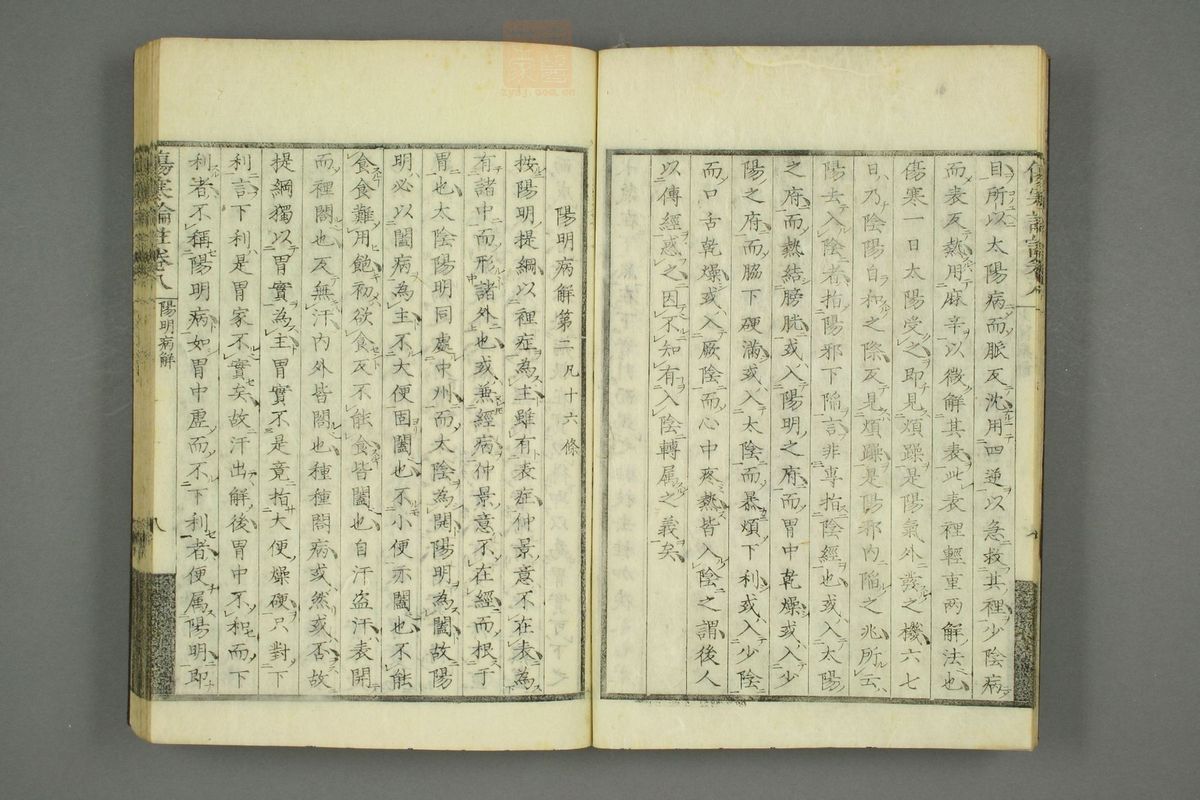 目所以太陽病而脈反沈用四逆以急救其裡少陰病
而表反熱用麻辛以微解其表此表裡輕重兩解法也
傷寒一日太陽受之即見煩躁是陽氣外發之機六七
日乃陰陽自和之際反見煩躁是陽邪內陷之兆所云
陽去入陰者指陽邪下陷言非專指陰經也或入太陽
之府而熱結膀胱或入陽明之府而胃中乾燥或入少
陽之府而脇下硬滿或入太陰而暴煩下利或入少陰
而口舌乾燥或入厥陰而心中疼熱皆入陰之謂後人
以傳經惑之因不知有入陰轉属之義矣
陽明病解第二 凡十六條
按陽明提綱以裡症為主雖有表症仲景意不在表為
有諸中而形諸外也或兼經病仲景意不在經而根于
胃也太陰陽明同處中州而太陰為開陽明為闔故陽
明必以闔病為主不大便固闔也不小便亦闔也不能
食食難用飽初欲食反不能食皆闔也自汗盜汗表開
而裡闔也反無汗內外皆闔也種種闔病或然或否故
提綱獨以胃實為主胃實不是竟指大便燥硬只對下
利言下利是胃家不實矣故汗出解後胃中不和而下
利者不稱陽明病如胃中虛而不下利者便属陽明即
傷寒論註卷八
陽明病解
八
zysj.com.cn